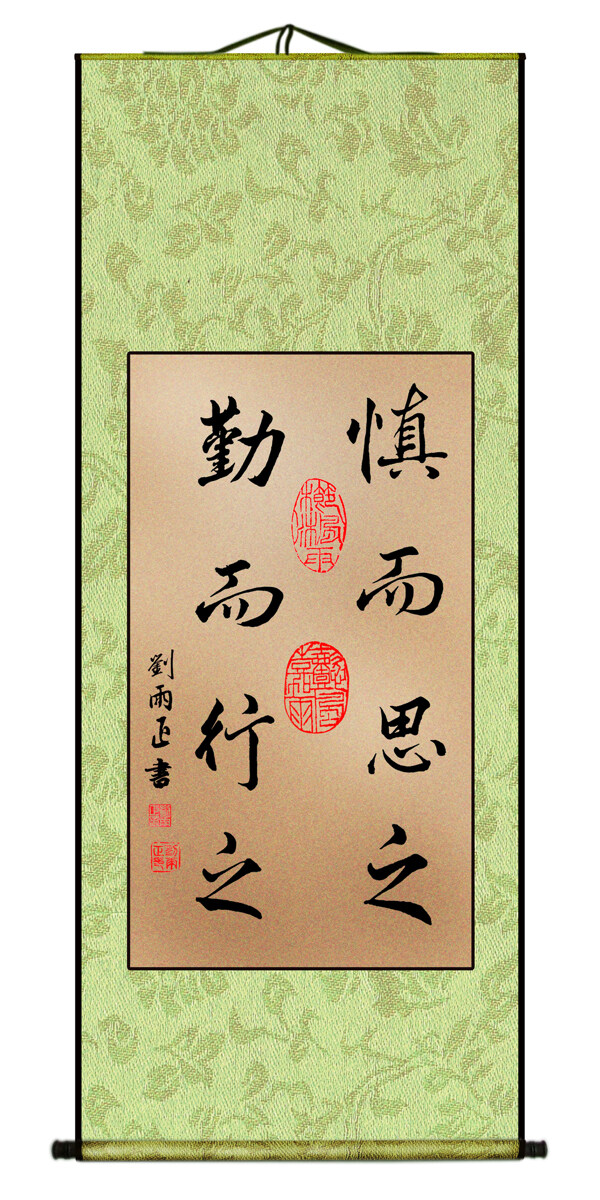 慎而思之
勤而行之
劉雨正書